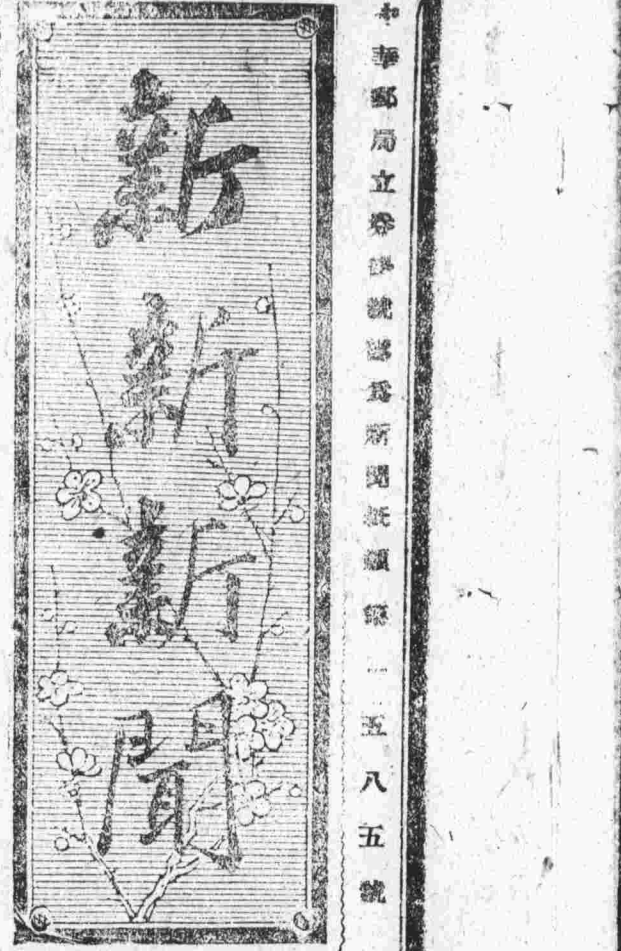 中華郵局立券掛號認爲新聞紙類第一五八五號
新新新聞